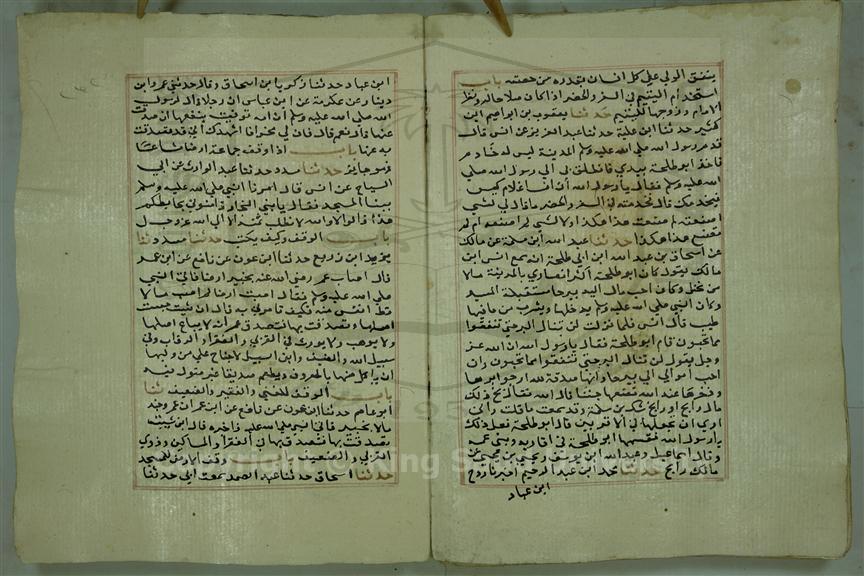 ينفق الولي علي كل انسان بقدره من حصته باب
استخدام اليتيم في السفر والحضر اذا كان صلاحا له ونظر
الام او زوجها لليتيم حدثنا يعقوب بن ابراهيم ابن
كثير حدثنا ابن علية حدثنا عبد العزيز عن انس قال
قدم رسول الله صلي الله عليه وسلم المدينة ليس له خادم
فاخذ ابو طلحة بيدي فانطلق بي الي رسول الله صلي
الله عليه وسلم فقال يا رسول الله ان انسا غلام كيس
فليخدمك قال فخدمته في السفر والحضر ما قال لي لشي
صنعته لم صنعت هذا هكذا ولا لشي لم اصنعه لم لم
تصنع هذا هكذا حدثنا عبد الله ابن مسلمة عن مالك
عن اسحاق بن عبد الله ابن ابي طلحة انه سمع انس ابن
مالك يقول كان ابو طلحة اكثر انصاري بالمدينة مالا
من نخل وكان احب ماله اليه بيرحا مستقبلة المسجد
وكان النبي صلي الله عليه وسلم يدخلها ويشرب من ما فيها
طيب قال انس فلما نزلت لن تنالوا البر حتي تنفقوا
مما تحبون قام ابو طلحة فقال يا رسول الله ان الله عز
وجل يقول لن تنالوا البر حتي تنفقوا مما تحبون وان
احب اموالي الي بيرحا وانها صدقة لله ارجوا برها
وذخرها عند الله فضعها حيث اراك الله فقال بخ ذلك
مال رابح او رايح شك بن مسلمة وقد سمعت ما قلت واني
اري ان تجعلها في الاقربين قال ابو طلحة افعل ذلك
يا رسول الله فقسمها ابو طلحة في اقاربه وبني عمه
وقال اسماعيل وعبد الله ابن يوسف ويحيي بن يحيي عن
مالك رايح حدثنا محمد ابن عبد الرحيم اخبرنا روح
ابن عباد
ابن عباد حدثنا زكريا ابن اسحاق وقال حدثني عمرو ابن
دينار عن عكرمة عن ابن عباس ان رجلا قال لرسول
الله صلي الله عليه وسلم ان امه توفيت اينفعها ان تصدقت
عنها قال نعم قال فان لي مخرافا اشهدك اني قد تصدقت
به عنها باب اذا اوقف جماعة ارضا مشاعا
فهو جايز حدثنا مسدد حدثنا عبد الوارث عن ابي
التياح عن انس قال امر النبي صلي الله عليه وسلم
ببنا المسجد فقال يا بني النجار ثامنوني بحايطكم
هذا قالوا لا والله لا نطلب ثمنه الا الي الله عز وجل
باب الوقف وكيف يكتب حدثنا مسدد ثنا
يزيد ابن زريع حدثنا ابن عون عن نافع عن ابن عمر
قال اصاب عمر رضي الله عنه بخيبر ارضا فاتي النبي
صلي الله عليه وسلم فقال اصبت ارضا لم اصب مالا
قط انفس منه فكيف تامرني به قال ان شيت حبست
اصلها وتصدقت بها فتصدق عمر انه لا يباع اصلها
ولا يوهب ولا يورث في القربي والفقرا والرقاب وفي
سبيل الله والضيف وابن السبيل لا جناح علي من وليها
ان ياكل منها بالمعروف ويطعم صديقا غير متمول فيه
باب الوقف للغني والفقير والضعيف ثنا
ابو عاصم حدثنا ابن عون عن نافع عن ابن عمر ان عمر وجد
مالا بخيبر فاتي النبي صلي الله عليه فاخبره قال ان شيت
تصدقت بها فتصدق بها في الفقرا والمساكين وذوي
القربي والضعيف باب وقف الارض للمسجد
حدثنا اسحاق حدثنا عبد الصمد سمعت ابي حدثنا